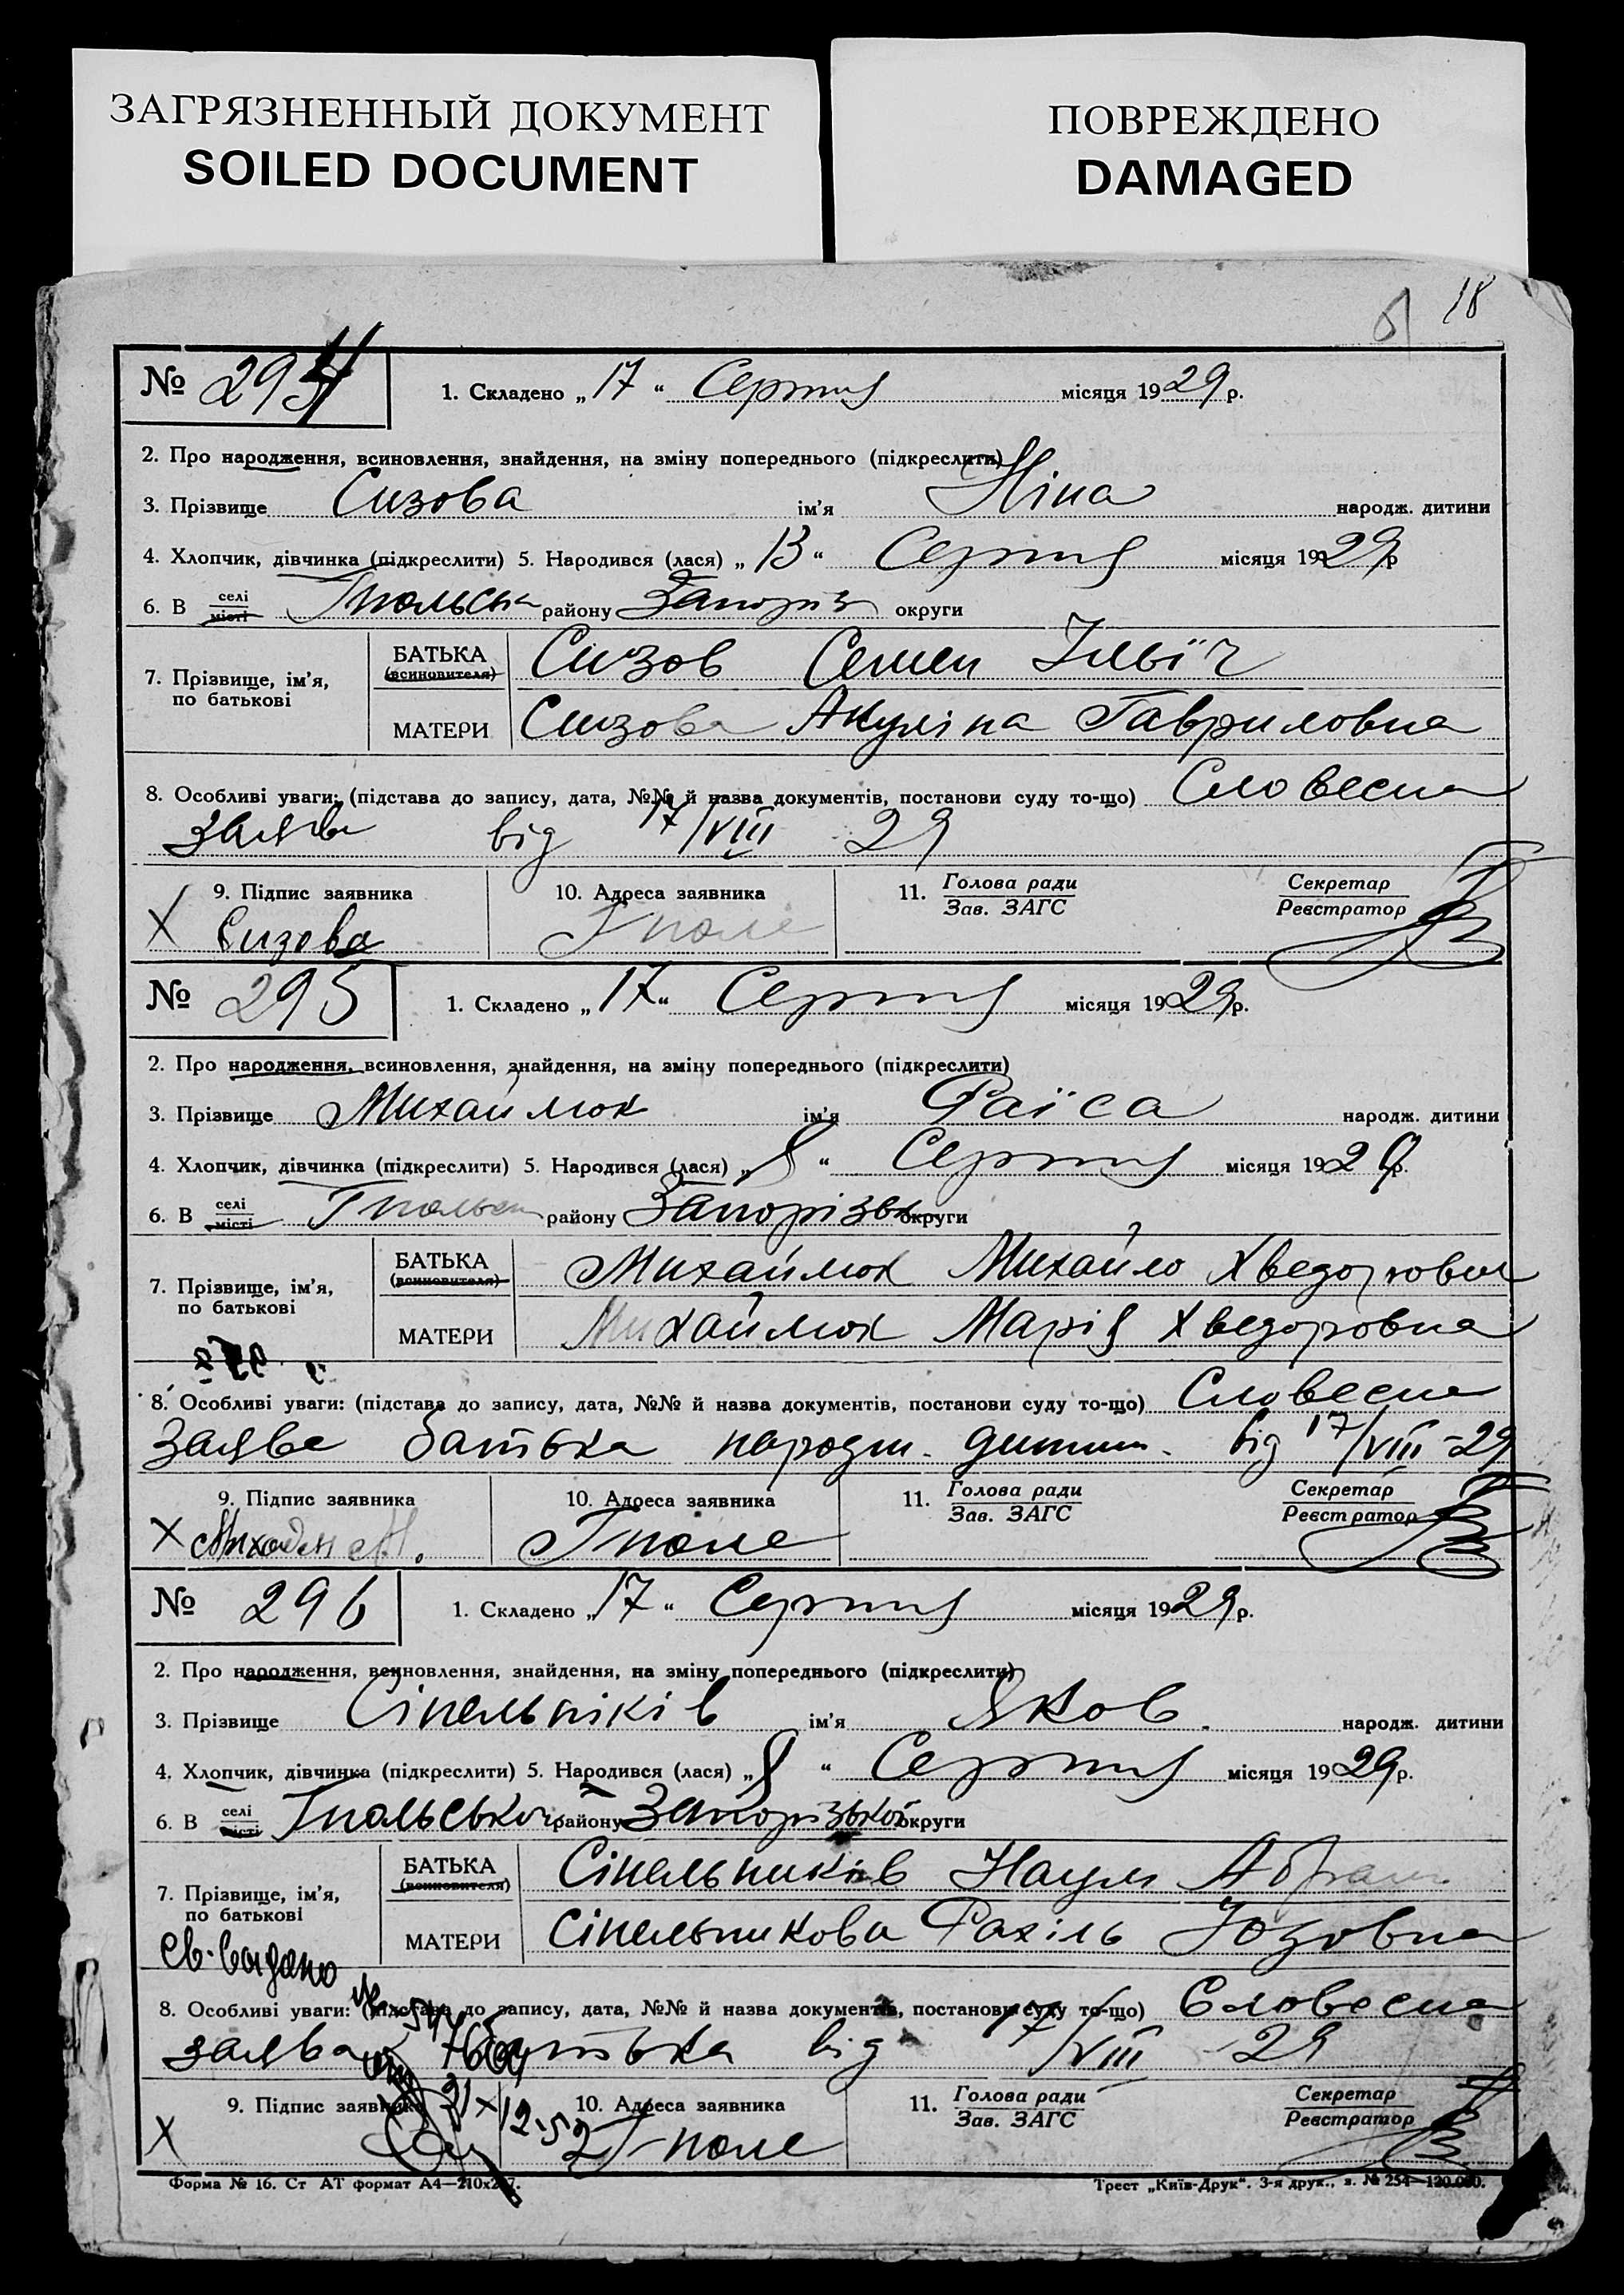 ЗАГРЯЗНЕННЫЙ ДОКУМЕНТ
SOILED DOCUMENT
ПОВРЕЖДЕНО
DAMAGED
18
№ 294 1. Складено „17“ Серпня місяця 1929 р.
2. Про народження, всиновлення, знайдення, на зміну попереднього (підкреслити)
3. Прізвище Сизова ім’я Ніна народж. дитини
4. Хлопчик, дівчинка (підкреслити) 5. Народився (лася) „13“ Серпня місяця 1929 р
6. В селі місті Гпольськ району Запоріз округи
7. Прізвище, ім’я, по батькові
БАТЬКА (всиновителя) Сизов Семен Ільїч
МАТЕРИ Сизова Акуліна Гавриловна
8. Особливі уваги: (підстава до запису, дата, №№ й назва документів, постанови суду то-що) Словесна
заява від 17/VIII 29
9. Підпис заявника 10. Адреса заявника 11. Голова ради Зав. ЗАГС Секретар Реєстратор
X Сизова Гполе
№ 295 1. Складено „17“ Серпня місяця 1929 р.
2. Про народження, всиновлення, знайдення, на зміну попереднього (підкреслити)
3. Прізвище Михайлюк ім’я Раїса народж. дитини
4. Хлопчик, дівчинка (підкреслити) 5. Народився (лася) „8“ Серпня місяця 1929 р.
6. В селі місті Гпольськ району Запорізьк округи
7. Прізвище, ім’я, по батькові
БАТЬКА (всиновителя) Михайлюк Михайло Хведорович
МАТЕРИ Михайлюк Марія Хведоровна
8. Особливі уваги: (підстава до запису, дата, №№ й назва документів, постанови суду то-що) Словесна
заява батька народж. дитини. від 17/VIII-29
9. Підпис заявника 10. Адреса заявника 11. Голова ради Зав. ЗАГС Секретар Реєстратор
X Гполе
№ 296 1. Складено „17“ Серпня місяця 1929 р.
2. Про народження, всиновлення, знайдення, на зміну попереднього (підкреслити)
3. Прізвище Сінельніків ім’я Яков. народж. дитини
4. Хлопчик, дівчинка (підкреслити) 5. Народився (лася) „8“ Серпня місяця 1929 р.
6. В селі місті Гпольського району Запорізької округи
7. Прізвище, ім’я, по батькові
БАТЬКА (всиновителя) Сінельників Наум Абрам
МАТЕРИ Сінельникова Рахіль Юзовна
Св. видано
8. Особливі уваги: (підстава до запису, дата, №№ й назва документів, постанови суду то-що) Словесна
заява батька від 17/VIII 29
9. Підпис заявника 10. Адреса заявника 11. Голова ради Зав. ЗАГС Секретар Реєстратор
X Гполе
Форма № 16. Ст АТ формат А4—210х297.
Трест „Київ-Друк“. 3-я друк., з. № 254—120.000.